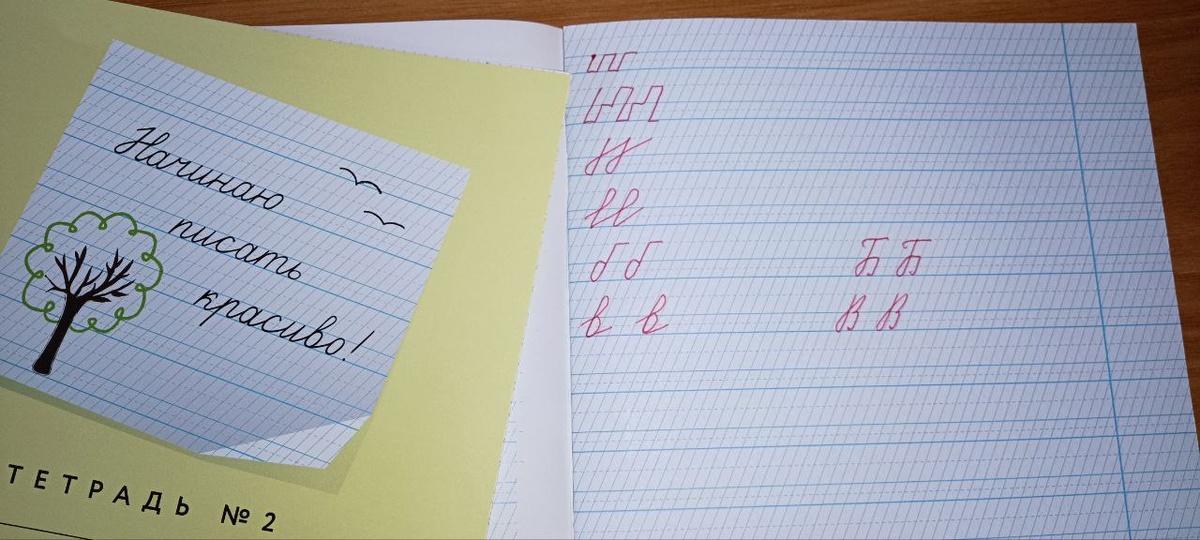 Начинаю
писать
красиво!
ТЕТРАДЬ № 2
б б Б Б
в в В В